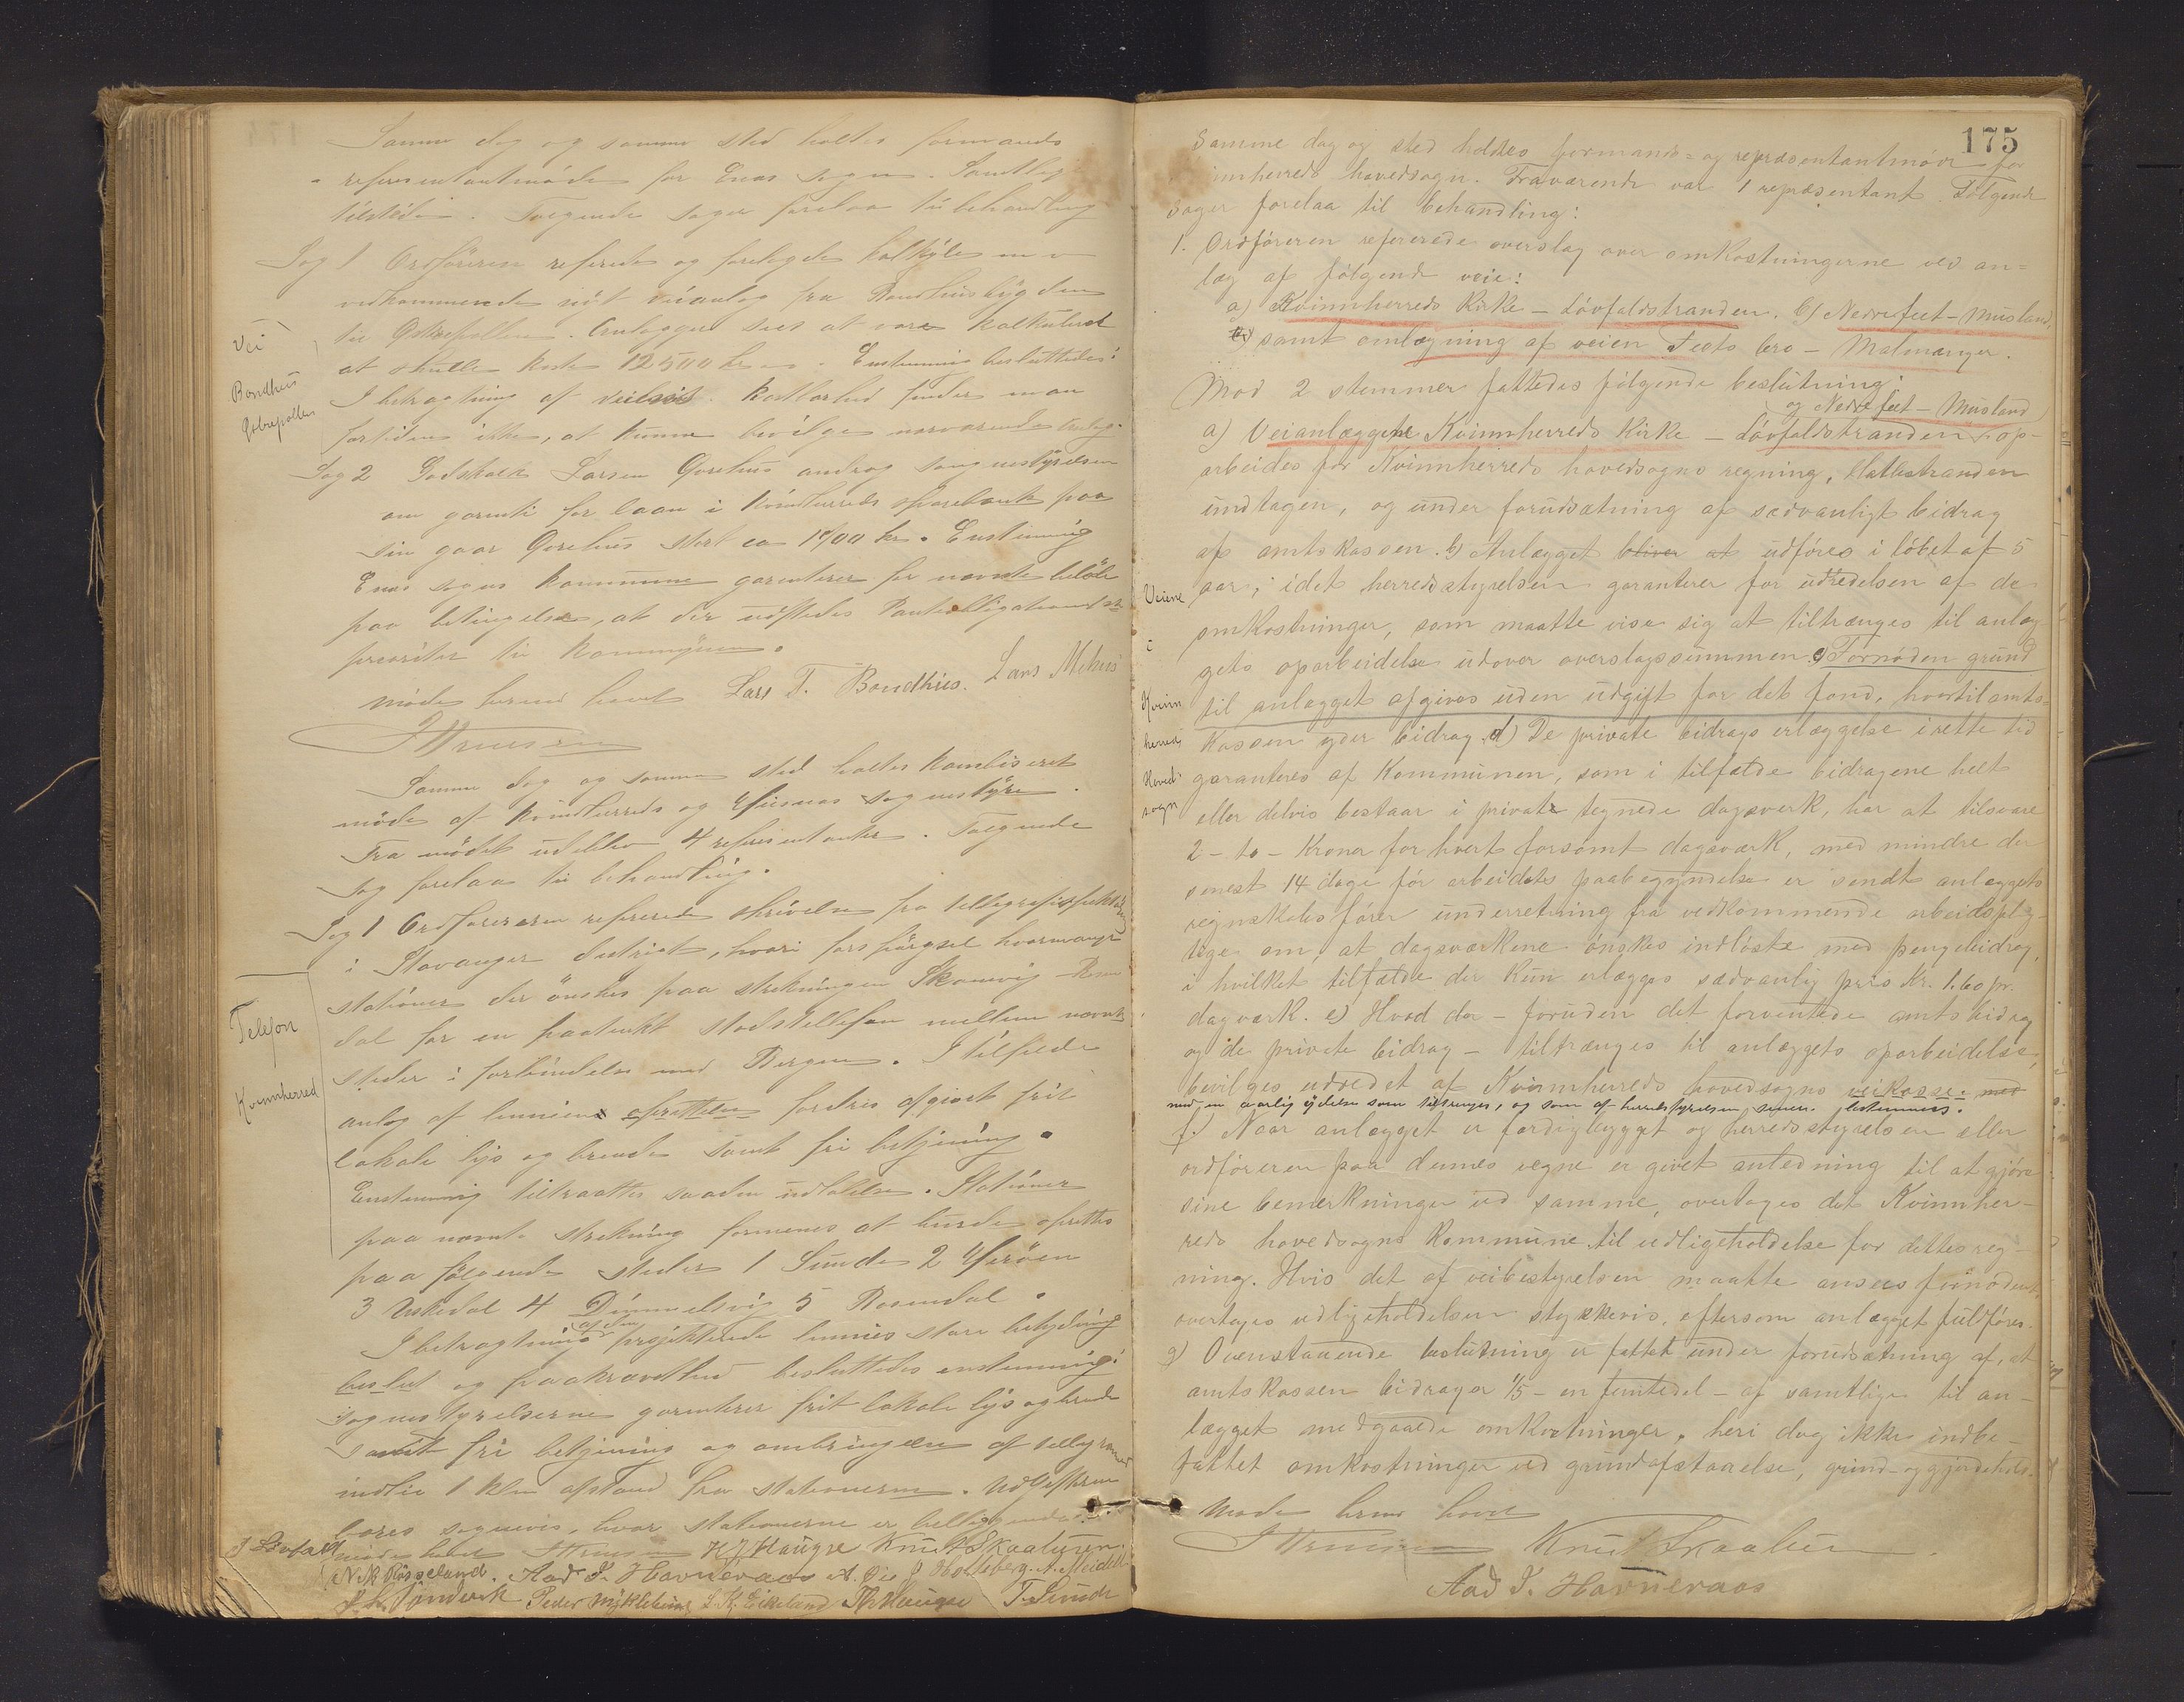 Samme dag og samme sted holtes formands
- representantmöde for Enes sogn. Samtlig
tilstede. Fölgende sager forelaa til behandling
Sag 1 Ordföreren referede og forelagde kalkyle m v
vedkommende nyt veianlæg fra Bondhusbygden
til Gjetrepollen. Anlægget sees at være kalkuleret
at skulle koste 12500 kr. Enstemmig besluttedes:
I betragtning af veiens kostbarhed finder man
fortiden ikke, at kunne bevilge nærværende anlæg.
Vei
Bondhus
Sag 2 Godskalk Larsen Gjerehus androg sognestyrelsen
om garanti for laan i Kvindherreds sparebank paa
sin gaar Gjerehus stort ca 1700 kr. Enstemmig
Enes sogns kommune garanterer for nævnte belöb
paa betingelse, at der udstedes Panteobligation med 2
prioritet til kommunen.
Möde herved hævet Lars T. Bondhus. Lars Mehus
Samme dag og samme sted holtes kombineret
möde af Kvindherreds og Husnæs sognestyre.
Fra mödet udeblev 4 representanter. Fölgende
sag forelaa til behandling.
Sag 1 Ordföreren referede skrivelse fra telegrafinspektören
i Stavanger distrigt, hvori forspörgsel hvormange
stationer der önskes paa strekningen Skonevig - Rosen
dal for en paatænkt statstellefon mellem nævnte
steder i forbindelse med Bergen. I tilfælde
anlæg af linnien oprettelse fordres afgivet frit
lokale lys og brende samt fri betjening.
Telefon
Kvinnherred
Enstemmig tiltraattes saadan udtalelse. Stationer
paa nævnte strekning formenes at burde oprettes
paa fölgende steder 1 Sunde 2 Heröen
3 Uskedal 4 Dimmelsvig 5 Rosendal.
I betragtning af den projekterede linnies store betydning
beslut og paakrævethed besluttedes enstemmig:
sognestyrelserne garanterer frit lokale lys og brende
samt fri betjening og ombringelse af telegrammer
indtil 1 klm afstand fra stationerne. Udgifterne
bæres sognevis, hvor stationerne er belliggende.
möde hævet H J Haugse Knut Skaaluren
N. K. Røsseland. Aad J. Havneraas A. Øie J Holtsberg. A. Meidell
Peder Myklebust L. K. Eikeland T. Sunde

175
Samme dag og sted holdtes formands- og repræsentantmöde for
innherreds hovedsogn. Fraværende var 1 repræsentant. Fölgende
sager forelaa til behandling:
1. Ordföreren refererede overslag over omkostningerne ved an-
læg af fölgende veie:
a) Kvinnherreds Kirke - Lövfaldstranden. b) Nedrefeet - Musland,
c) samt omlægning af veien Feets bro - Malmanger.
Mod 2 stemmer fattedes fölgende beslutning:
og Nedrefeet - Musland
a) Veianlæggene Kvinnherreds Kirke - Lövfaldstranden op-
arbeides for Kvinnherreds hovedsogns regning, Hattestranden
undtagen, og under forudsætning af sædvanligt bidrag
af amtskassen. b) Anlægget bliver at udføres i löbet af 5
aar; idet herredsstyrelsen garanterer for udredelsen af de
omkostninger, som maatte vise sig at tiltrænges til anlæg
gets oparbeidelse udover overslagssummen c) Fornöden grund
til anlægget afgives uden udgift for det fond, hvortil amts-
kassen yder bidrag. d) De private bidrags erlæggelse i rette tid
garanteres af kommunen, som i tilfælde bidragene helt
eller delvis bestaar i private tegnede dagsverk, har at tilsvare
2 - to - kroner for hvert forsömt dagsværk, med mindre der
senest 14 dage för arbeidets paabegyndelse er sendt anlæggets
regnskabsförer underretning fra vedkommende arbeidsplig-
tige om, at dagsværkene önskes indlöste med pengebidrag,
i hvilket tilfælde der kun erlægges sædvanlig pris Kr. 1.60 pr.
dagværk. e) Hvad der - foruden det forventede amtsbidrag
og de private bidrag - tiltrænges til anlæggets oparbeidelse,
bevilges udredet af Kvinnherreds hovedsogns veikasse. med
med en aarlig ydelse som tiltrænges, og som af herredsstyrelsen senere bestemmes.
f.) Naar anlægget er færdigbygget og herredsstyrelsen eller
ordföreren paa dennes vegne er givet anledning til at gjöre
sine bemærkninger ved samme, overtages det Kvinnher-
reds hovedsogns kommune til vedligeholdelse for dettes reg-
ning. Hvis det af veibestyrelsen maatte ansees fornödent,
overtages vedligeholdelsen stykkevis, eftersom anlægget fuldföres.
g) Ovenstaaende beslutning er fattet under forudsætning af, at
amtskassen bidrager 1/5 - en femtedel - af samtlige til an-
lægget medgaaede omkostninger, heri dog ikke indbe-
fattet omkostninger ved grundafstaaelse, grind- og gjerdehold.
Veiene
i
Kvinn
herreds
Hoved-
sogn
Möde herved hævet
Knut Skaaluren
Aad J. Havneraas